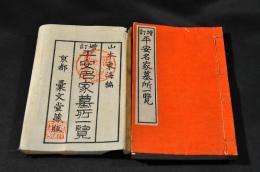 山本臨海編
増訂
平安名家墓所一覧
京都
彙文堂蔵版
増訂
平安名家墓所一覧